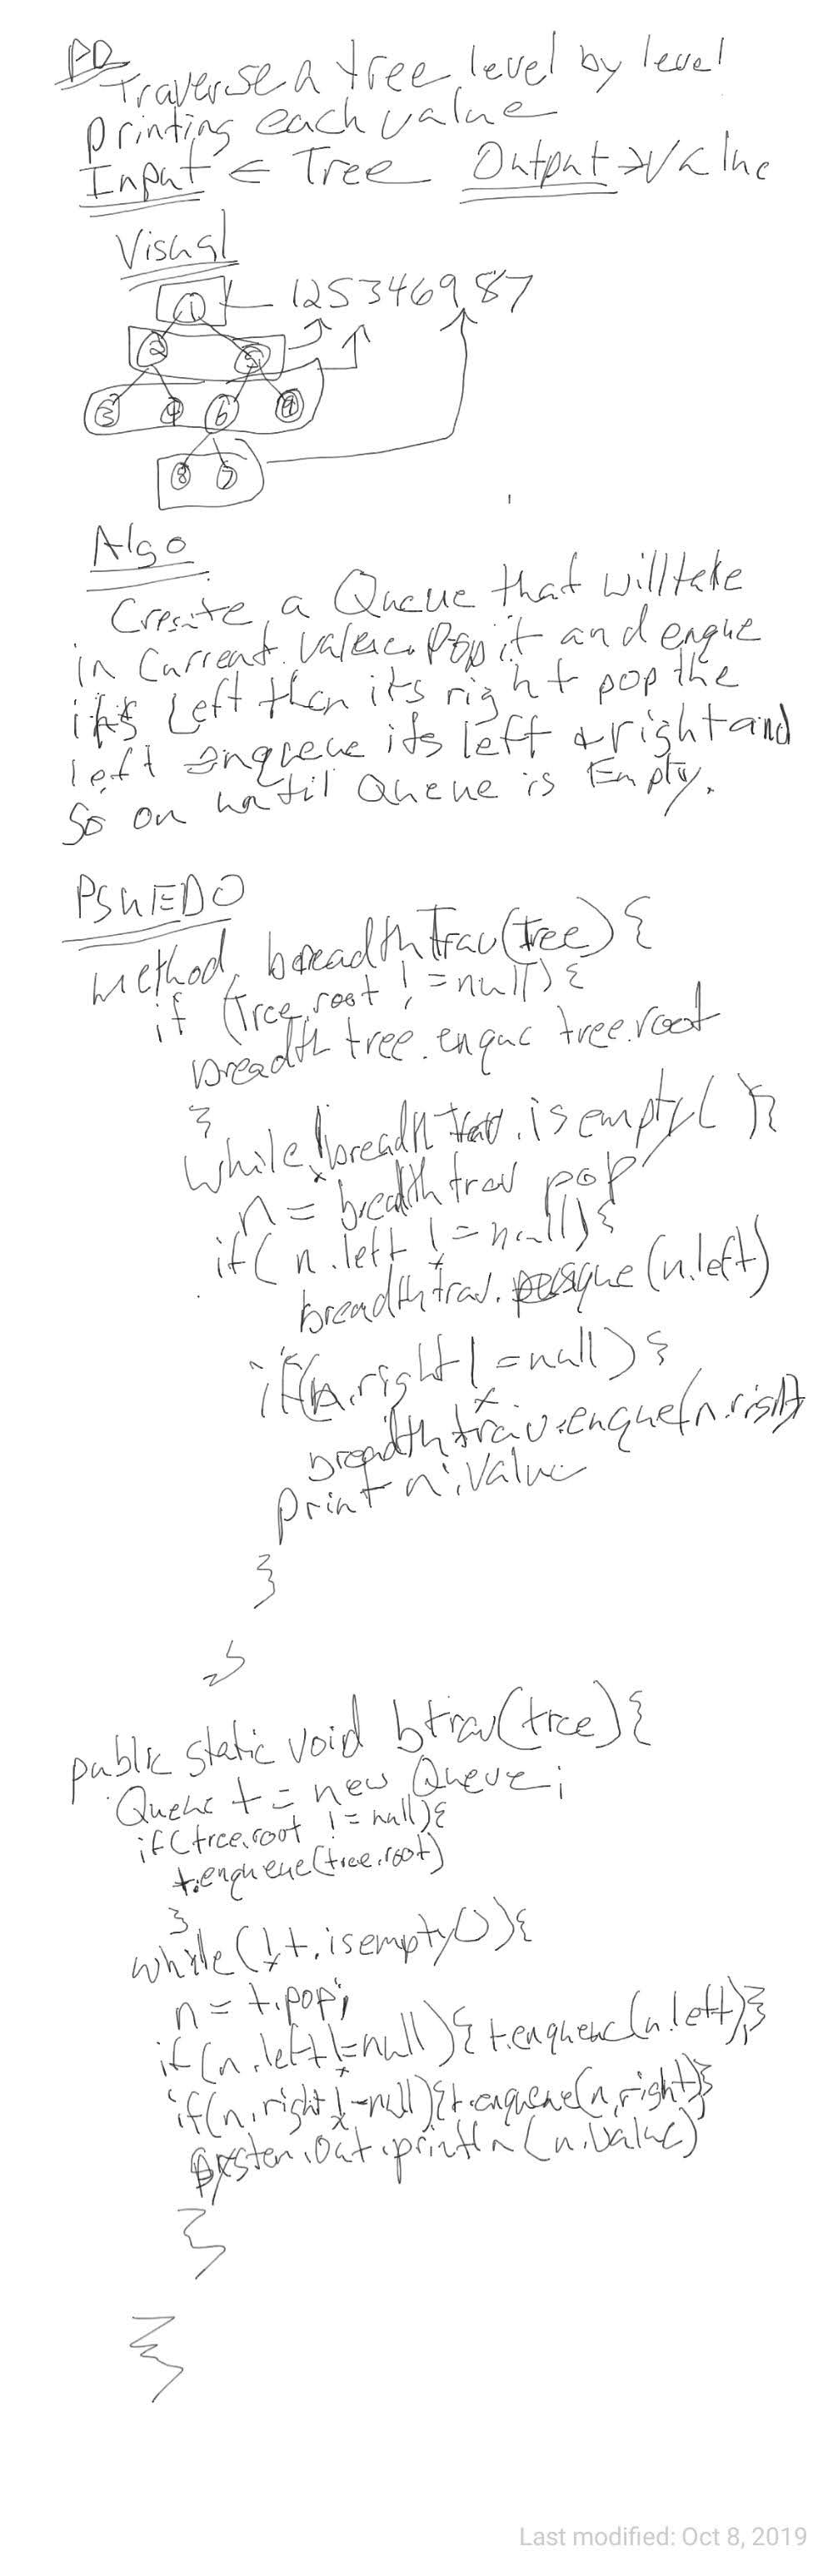 PD
Traverse a tree level by level
printing each value
Input ← Tree Output → Value
Visual
1 125346987
2 5
3 4 6 9
8 7
Algo
Create a Queue that will take
in Current Pop it and enque
its Left then its right pop the
left enqueue its left + right and
So on until Queue is Empty.
PSUEDO
Method breadthTrav(tree) {
if (Tree.root != null) {
breadth tree.enque tree.root
}
while !breadth trav.isempty( ){
n = breadth trav pop
if( n.left != null){
breadthtrav.enque(n.left)
if(n.right != null) {
breadthtrav.enque(n.right)
print n.value
}
}
public static void btrav(tree){
Queue t = new Queue;
if(tree.root != null){
t.enqueue(tree.root)
}
while(!t.isempty()){
n = t.pop;
if(n.left != null){t.enqueue(n.left);}
if(n.right != null){t.enqueue(n.right)}
System.out.println(n.value)
}
}
Last modified: Oct 8, 2019